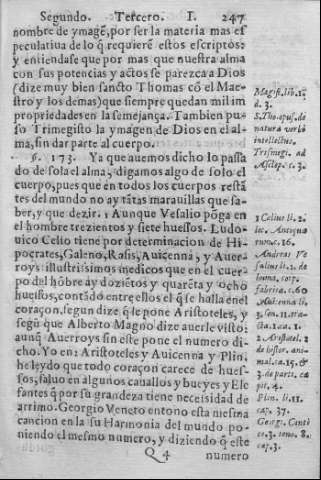 Segundo. Tercero. I. 247
nombre de ymagẽ, por ser la materia mas es
peculatiua de lo q̃ requierẽ estos escriptos:
y entiendase que por mas que nuestra alma
con sus potencias y actos se parezca a Dios
(dize muy bien sancto Thomas cõ el Mae-
stro y los demas) que siempre quedan mil im
propriedades en la semejança. Tambien pu-
so Trimegisto la ymagen de Dios en el al-
ma, sin dar parte al cuerpo.
§. 173. Ya que auemos dicho lo passa
do de sola el alma, digamos algo de solo el
cuerpo, pues que en todos los cuerpos restã
tes del mundo no ay tãtas marauillas que sa-
ber, y que dezir. 1 Aunque Vesalio põga en
el hombre trezientos y siete huessos. Ludo-
uico Celio tiene por determinacion de Hi-
pocrates, Galeno, Rasis, Auicenna, y Auer-
roys: illustrissimos medicos que en el cuer-
po del hõbre ay doziẽtos y quarẽta y ocho
huessos, contãdo entre ellos el q̃ se halla en el
coraçon, segun dize q̃ le pone Aristoteles, y
segũ que Alberto Magno dize auerle visto:
aunq̃ Auerroys sin este pone el numero di-
cho. Yo en: Aristoteles y Auicenna y Plin.
he leydo que todo coraçon carece de hues-
sos, saluo en algunos cauallos y bueyes y Ele
fantes q̃ por su grandeza tiene necesidad de
arrimo. Georgio Veneto entono esta mesma
cancion en la su Harmonia del mundo po-
niendo el mesmo numero, y diziendo q̃ este
Q 4 numero
Magist. lib. 1.
d. 3.
S. Tho. opus. de
natura verbi
intellectus.
Trismegi. ad
Asclep. c. 3.
1 Celius li. 2.
lec. Antiqua
rum. c. 16.
Andreas Ve
salius li. 2. de
huma. corp.
fabrica. c. 60
Auicenna li.
3. fen. 11. tra-
sta. 1. ca. 1.
2 Aristotel. 2
de histor. ani-
mal. ca. 15. &
3. de parti. ca
pit. 4.
Plin. li. 11.
cap. 37.
Georgi. Canti
co. 3. tono. 8.
cap. 3.